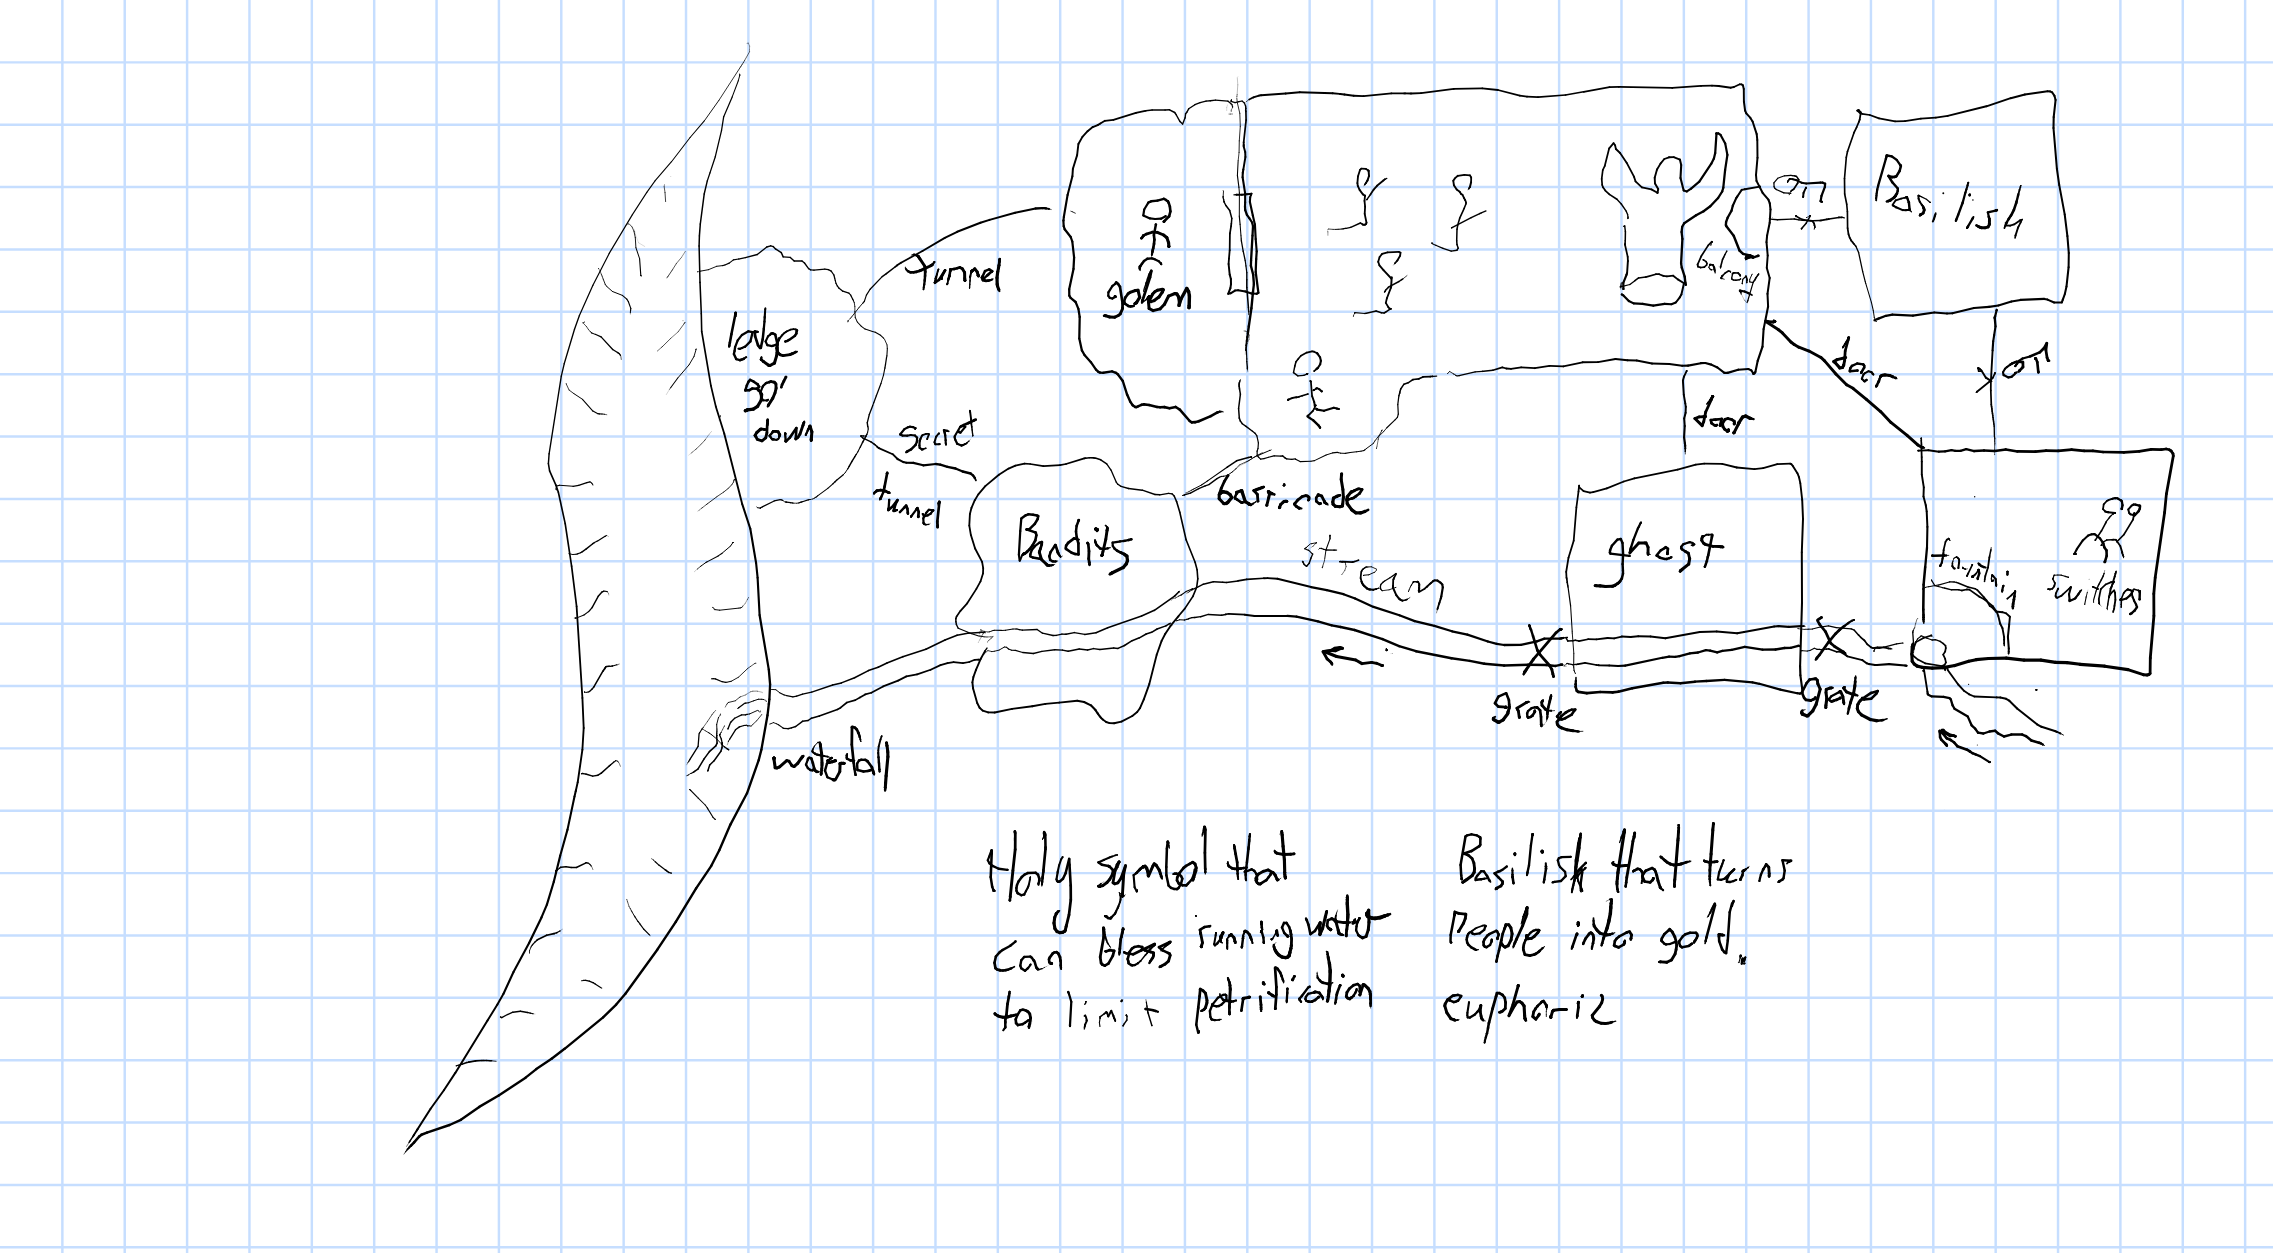 Basilish
balcony
tunnel
golem
ledge
30'
down
door
door
secret
tunnel
barricade
Bandits
stream
ghost
fountain
switches
grate
grate
waterfall
Holy symbol that
can bless running water
to limit petrification
Basilisk that turns
People into gold.
euphoric